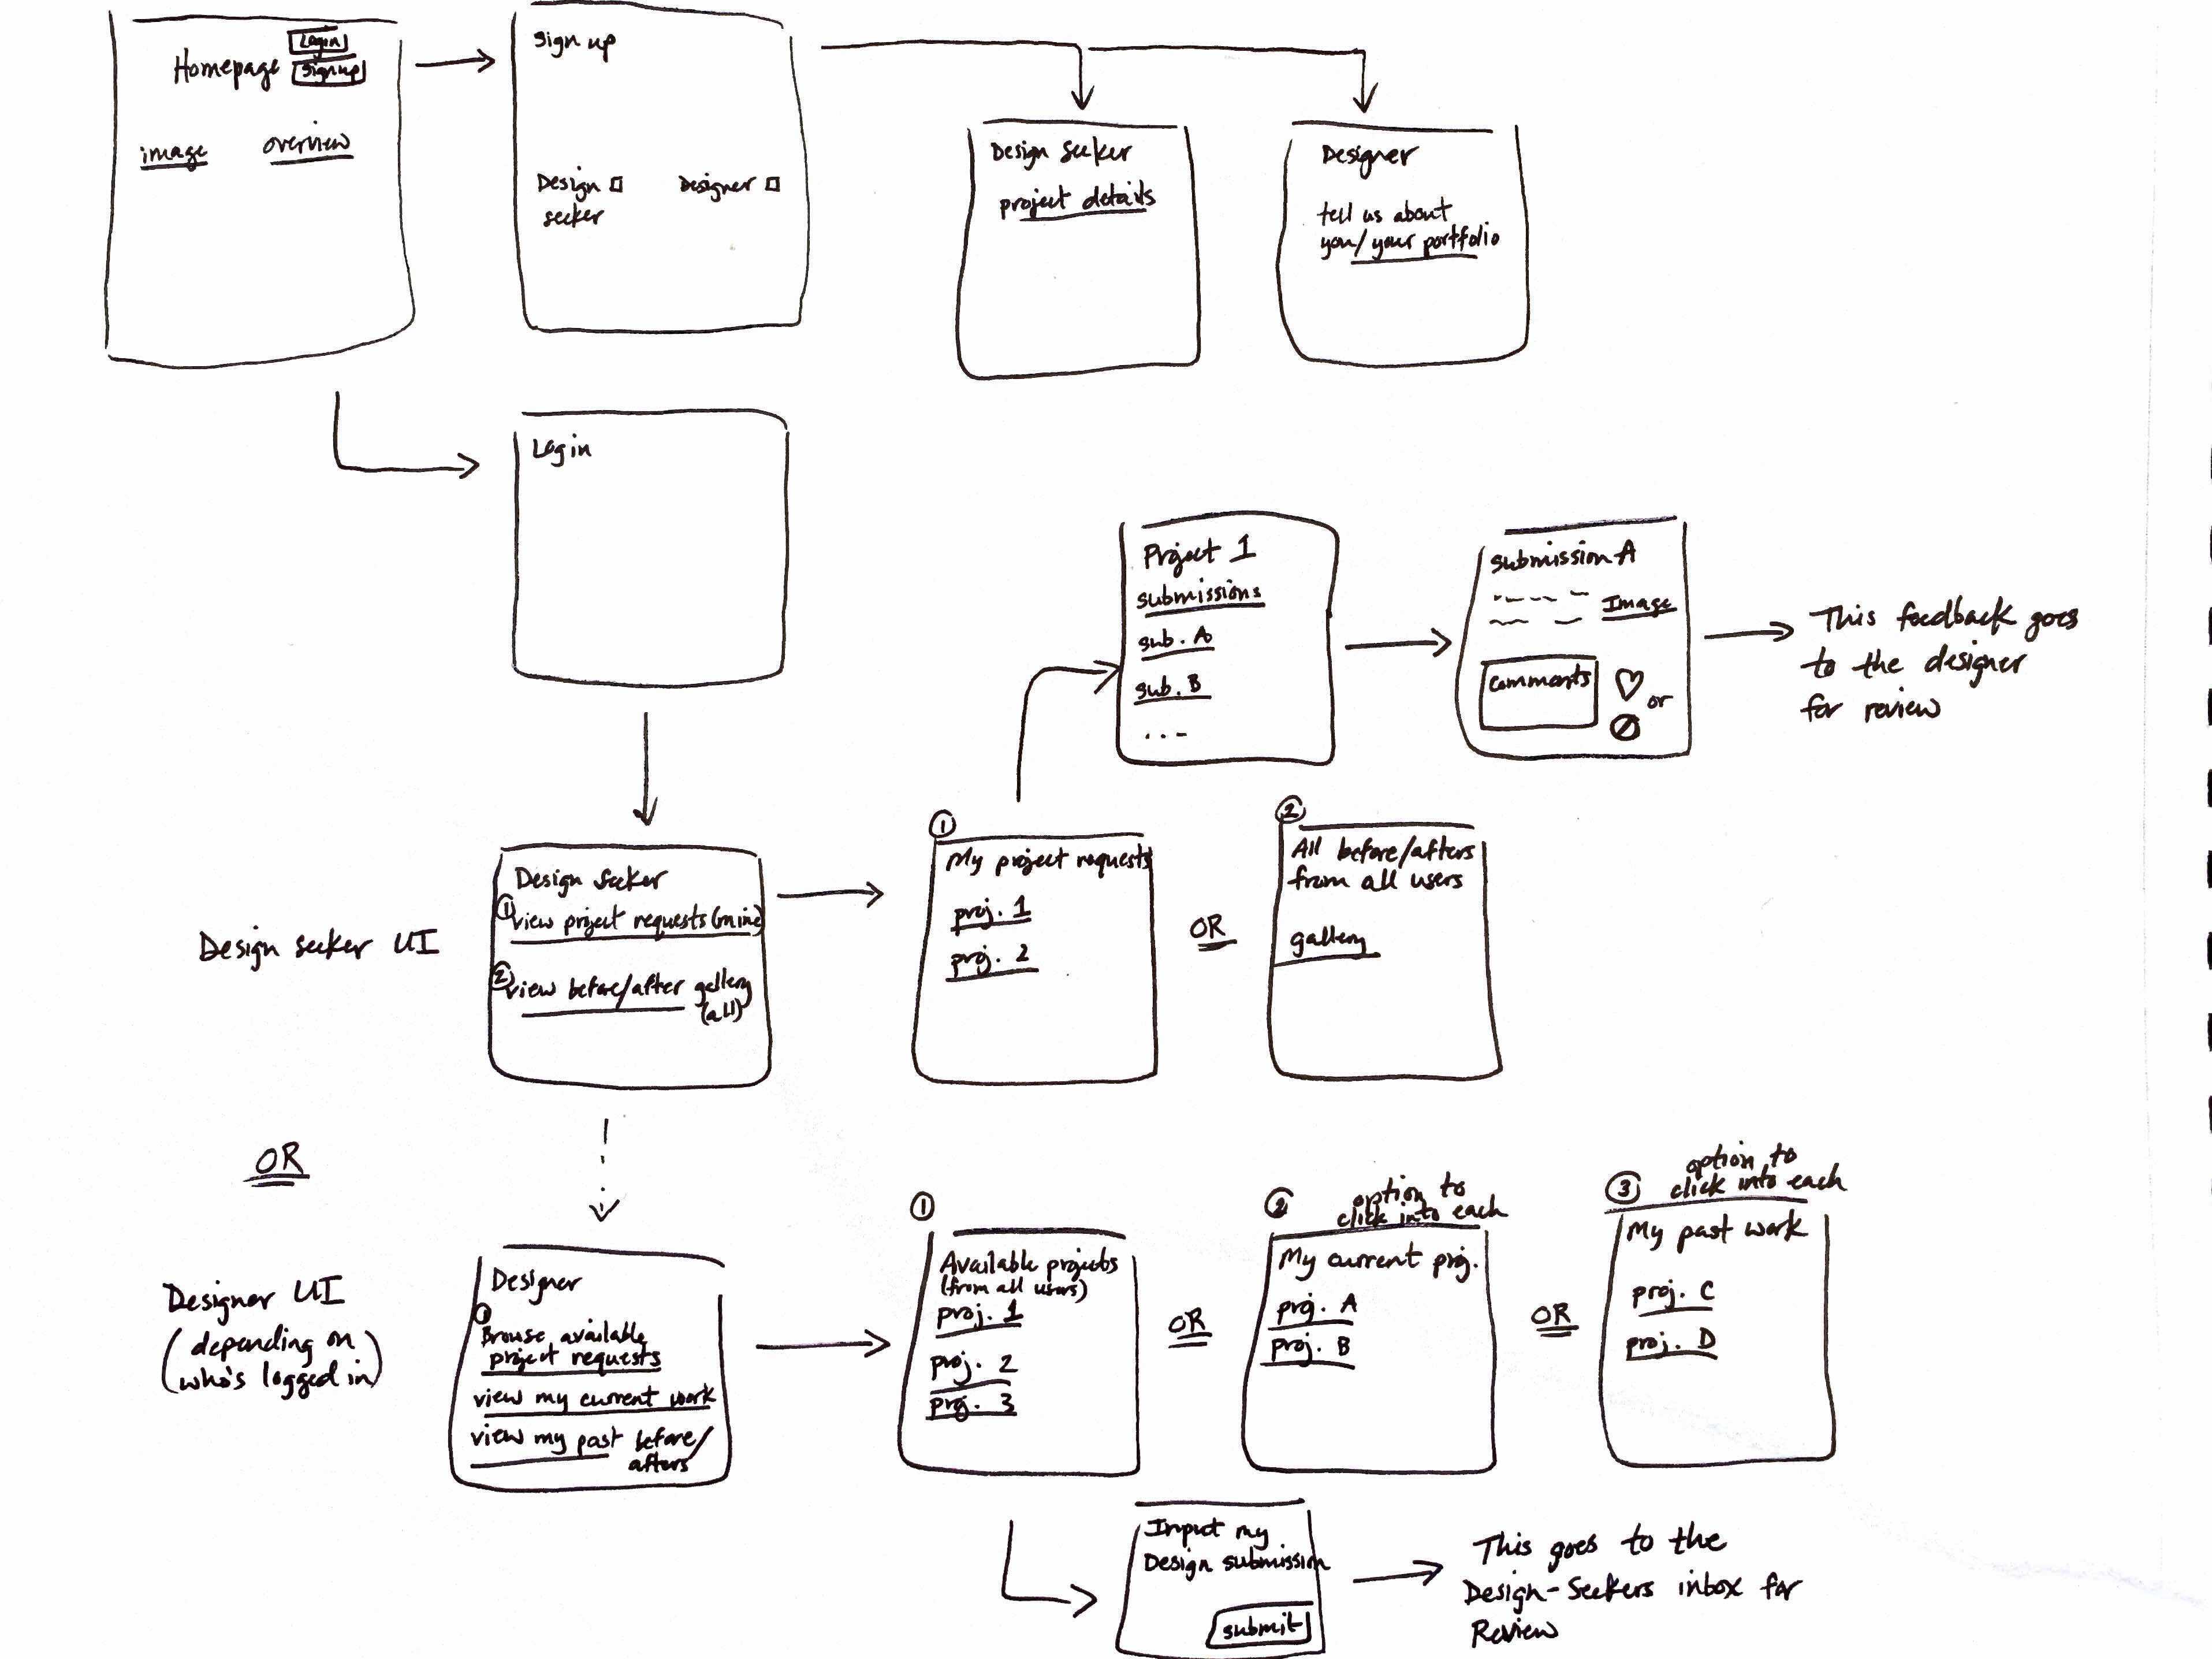 Homepage
Login
Signup
image
overview
Sign up
Design
seeker
Designer
Design Seeker
project details
Designer
tell us about
you/your portfolio
Login
Project 1
submissions
sub. A
sub. B
...
Submission A
Image
comments
or
This feedback goes
to the designer
for review
Design seeker UI
Design Seeker
① view project requests (mine)
② view before/after gallery
(all)
①
My project requests
proj. 1
proj. 2
OR
②
All before/afters
from all users
gallery
OR
Designer UI
(depending on
who's logged in)
Designer
①
Browse available
project requests
view my current work
view my past before/
afters
①
Available projects
(from all users)
proj. 1
proj. 2
proj. 3
OR
②
option to
click into each
My current proj.
proj. A
proj. B
OR
③
option to
click into each
My past work
proj. C
proj. D
Input my
Design submission
submit
This goes to the
Design-Seekers inbox for
Review